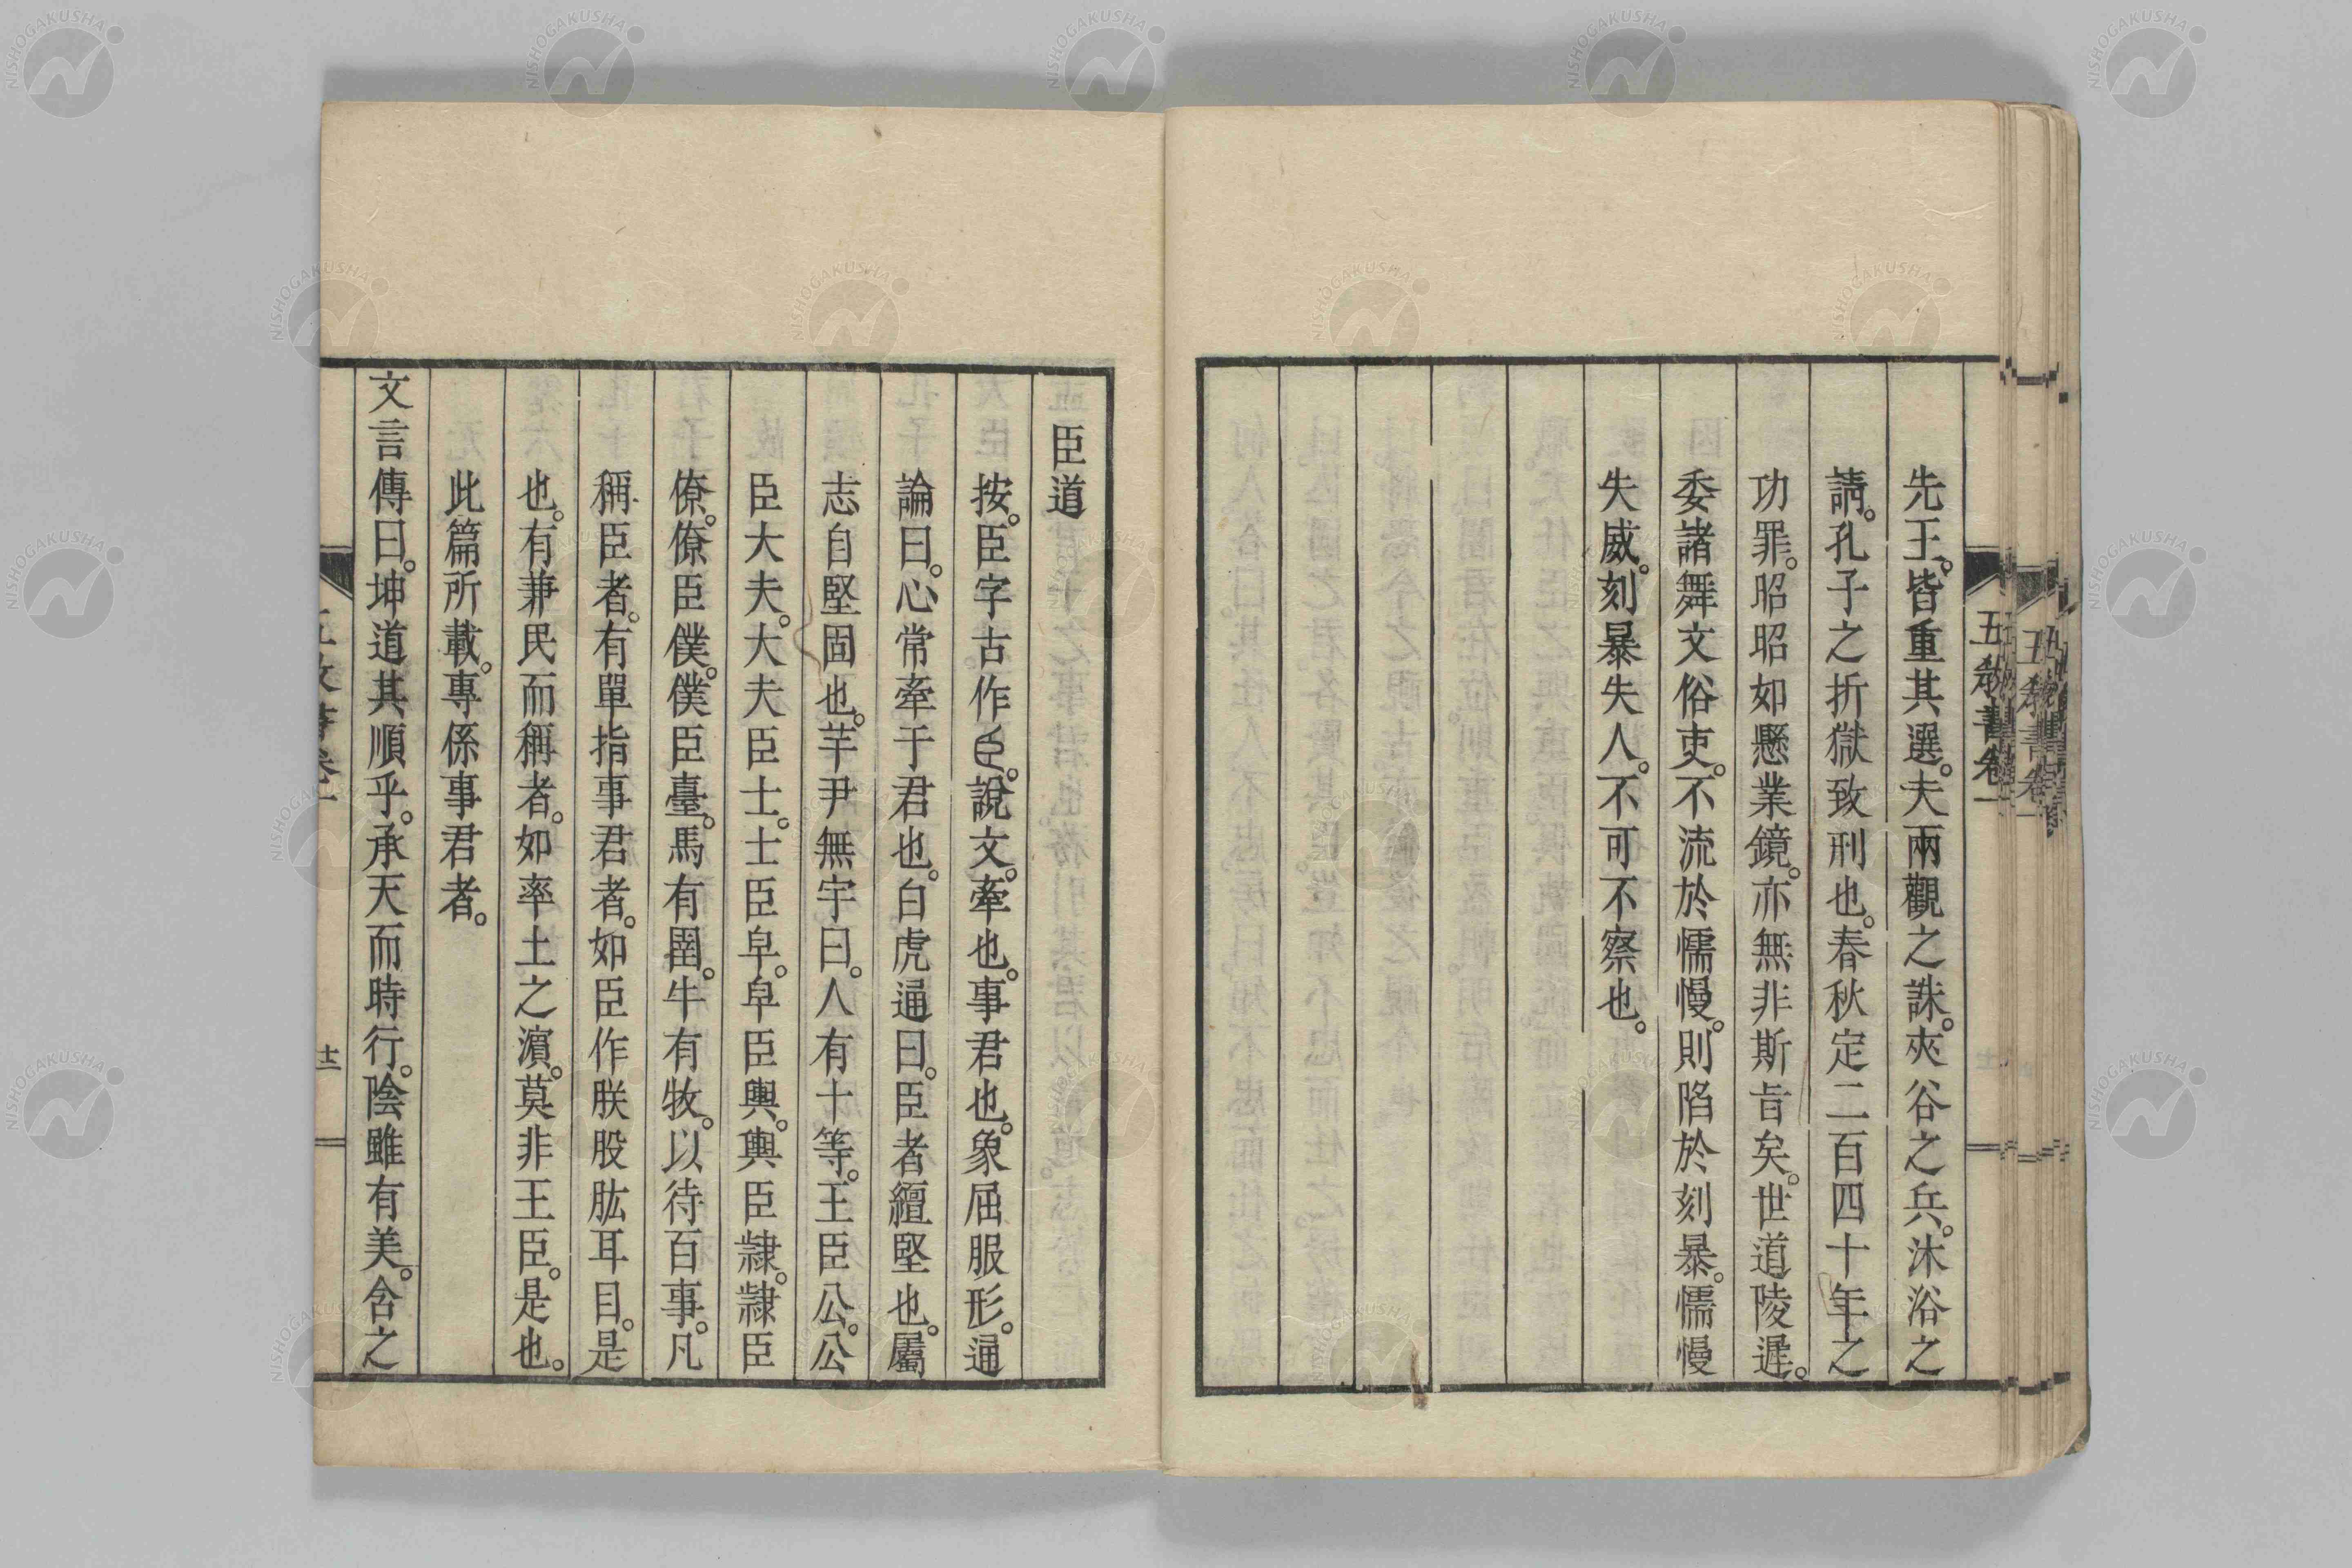 五教書卷一
先王。皆重其選。夫兩觀之誅。夾谷之兵。沐浴之
請。孔子之折獄致刑也。春秋定二百四十年之
功罪。昭昭如懸業鏡。亦無非斯旨矣。世道陵遲。
委諸舞文俗吏。不流於懦慢。則陷於刻暴。懦慢
失威。刻暴失人。不可不察也。
臣道
按。臣字古作𦣞。說文。牽也。事君也。象屈服形。通
論曰。心常牽于君也。白虎通曰。臣者繵堅也。屬
志自堅固也。芋尹無宇曰。人有十等。王臣公。公
臣大夫。大夫臣士。士臣皁。皁臣輿。輿臣隸。隸臣
僚。僚臣僕。僕臣臺。馬有圉。牛有牧。以待百事。凡
稱臣者。有單指事君者。如臣作朕股肱耳目。是
也。有兼民而稱者。如率土之濵。莫非王臣。是也。
此篇所載。專係事君者。
文言傳曰。坤道其順乎。承天而時行。陰雖有美。含之
十二
NISHOGAKUSHA